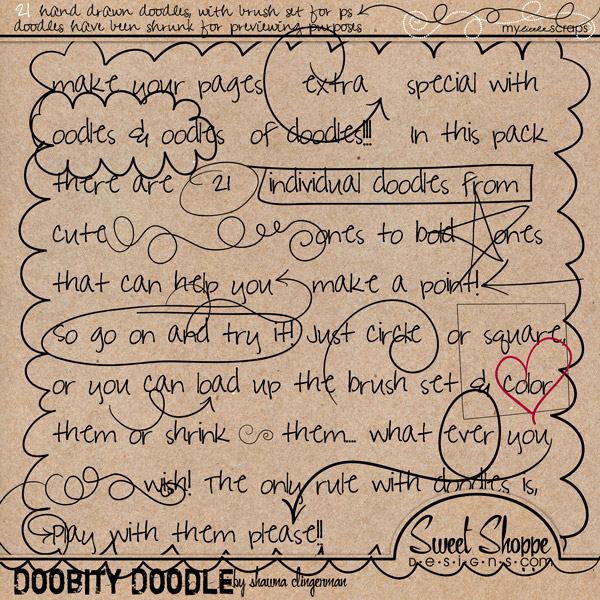 21 hand drawn doodles, with brush set for ps
doodles have been shrunk for previewing purposes
my little scraps
make your pages extra special with
oodles & oodles of doodles!!! In this pack
there are 21 individual doodles from
cute ones to bold ones
that can help you make a point!
so go on and try it! Just circle or square,
or you can load up the brush set & color
them or shrink them... what ever you
wish! The only rule with doodles is,
play with them please!!
Sweet Shoppe
DESIGNS.com
DOOBITY DOODLE by shawna clingerman